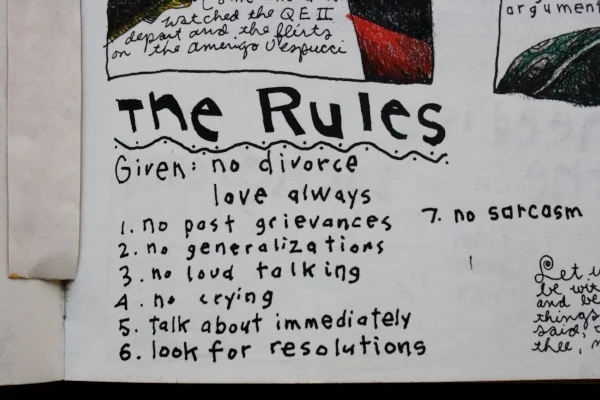 watched the QE II
depart and the flirts
on the amerigo vespucci
argument
The Rules
Given: no divorce
love always
1. no past grievances
2. no generalizations
3. no loud talking
4. no crying
5. talk about immediately
6. look for resolutions
7. no sarcasm
Let u
be wit
and be
things
said,
thee, m